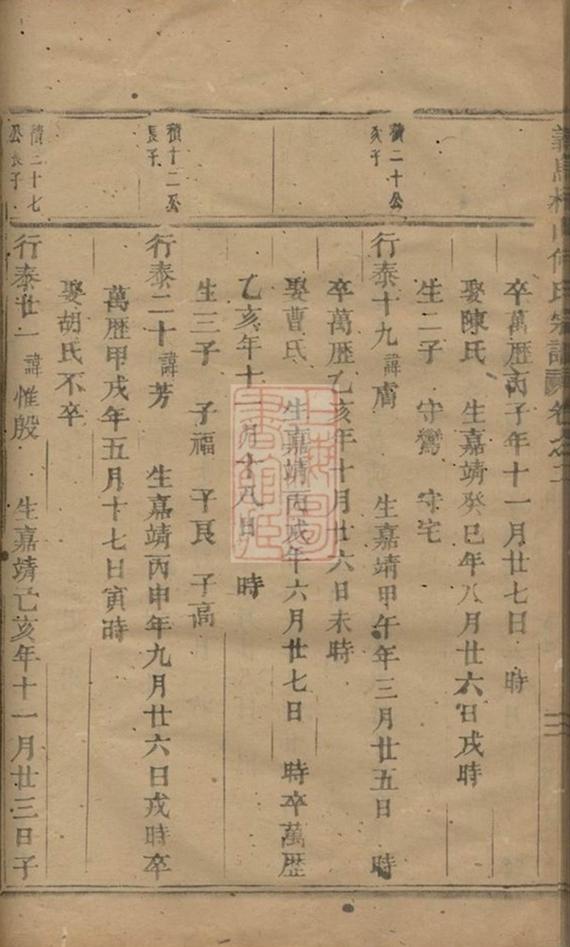 卒萬歷丙子年十一月廿七日 時
娶陳氏 生嘉靖癸巳年八月廿六日戌時
生二子 守鸞 守宅
積二十公
次子
行泰十九 諱 生嘉靖甲午年三月廿五日 時
卒萬歷乙亥年十月廿六日未時
娶曹氏 生嘉靖丙戌年六月廿七日 時卒萬歷
乙亥年十一月十八日 時
生三子 子福 子良 子高
積十二公
長子
行泰二十 諱芳 生嘉靖丙申年九月廿六日戌時卒
萬歷甲戌年五月十七日寅時
娶胡氏不卒
積二十七
公長子
行泰廿一 諱惟殷 生嘉靖乙亥年十一月廿三日子